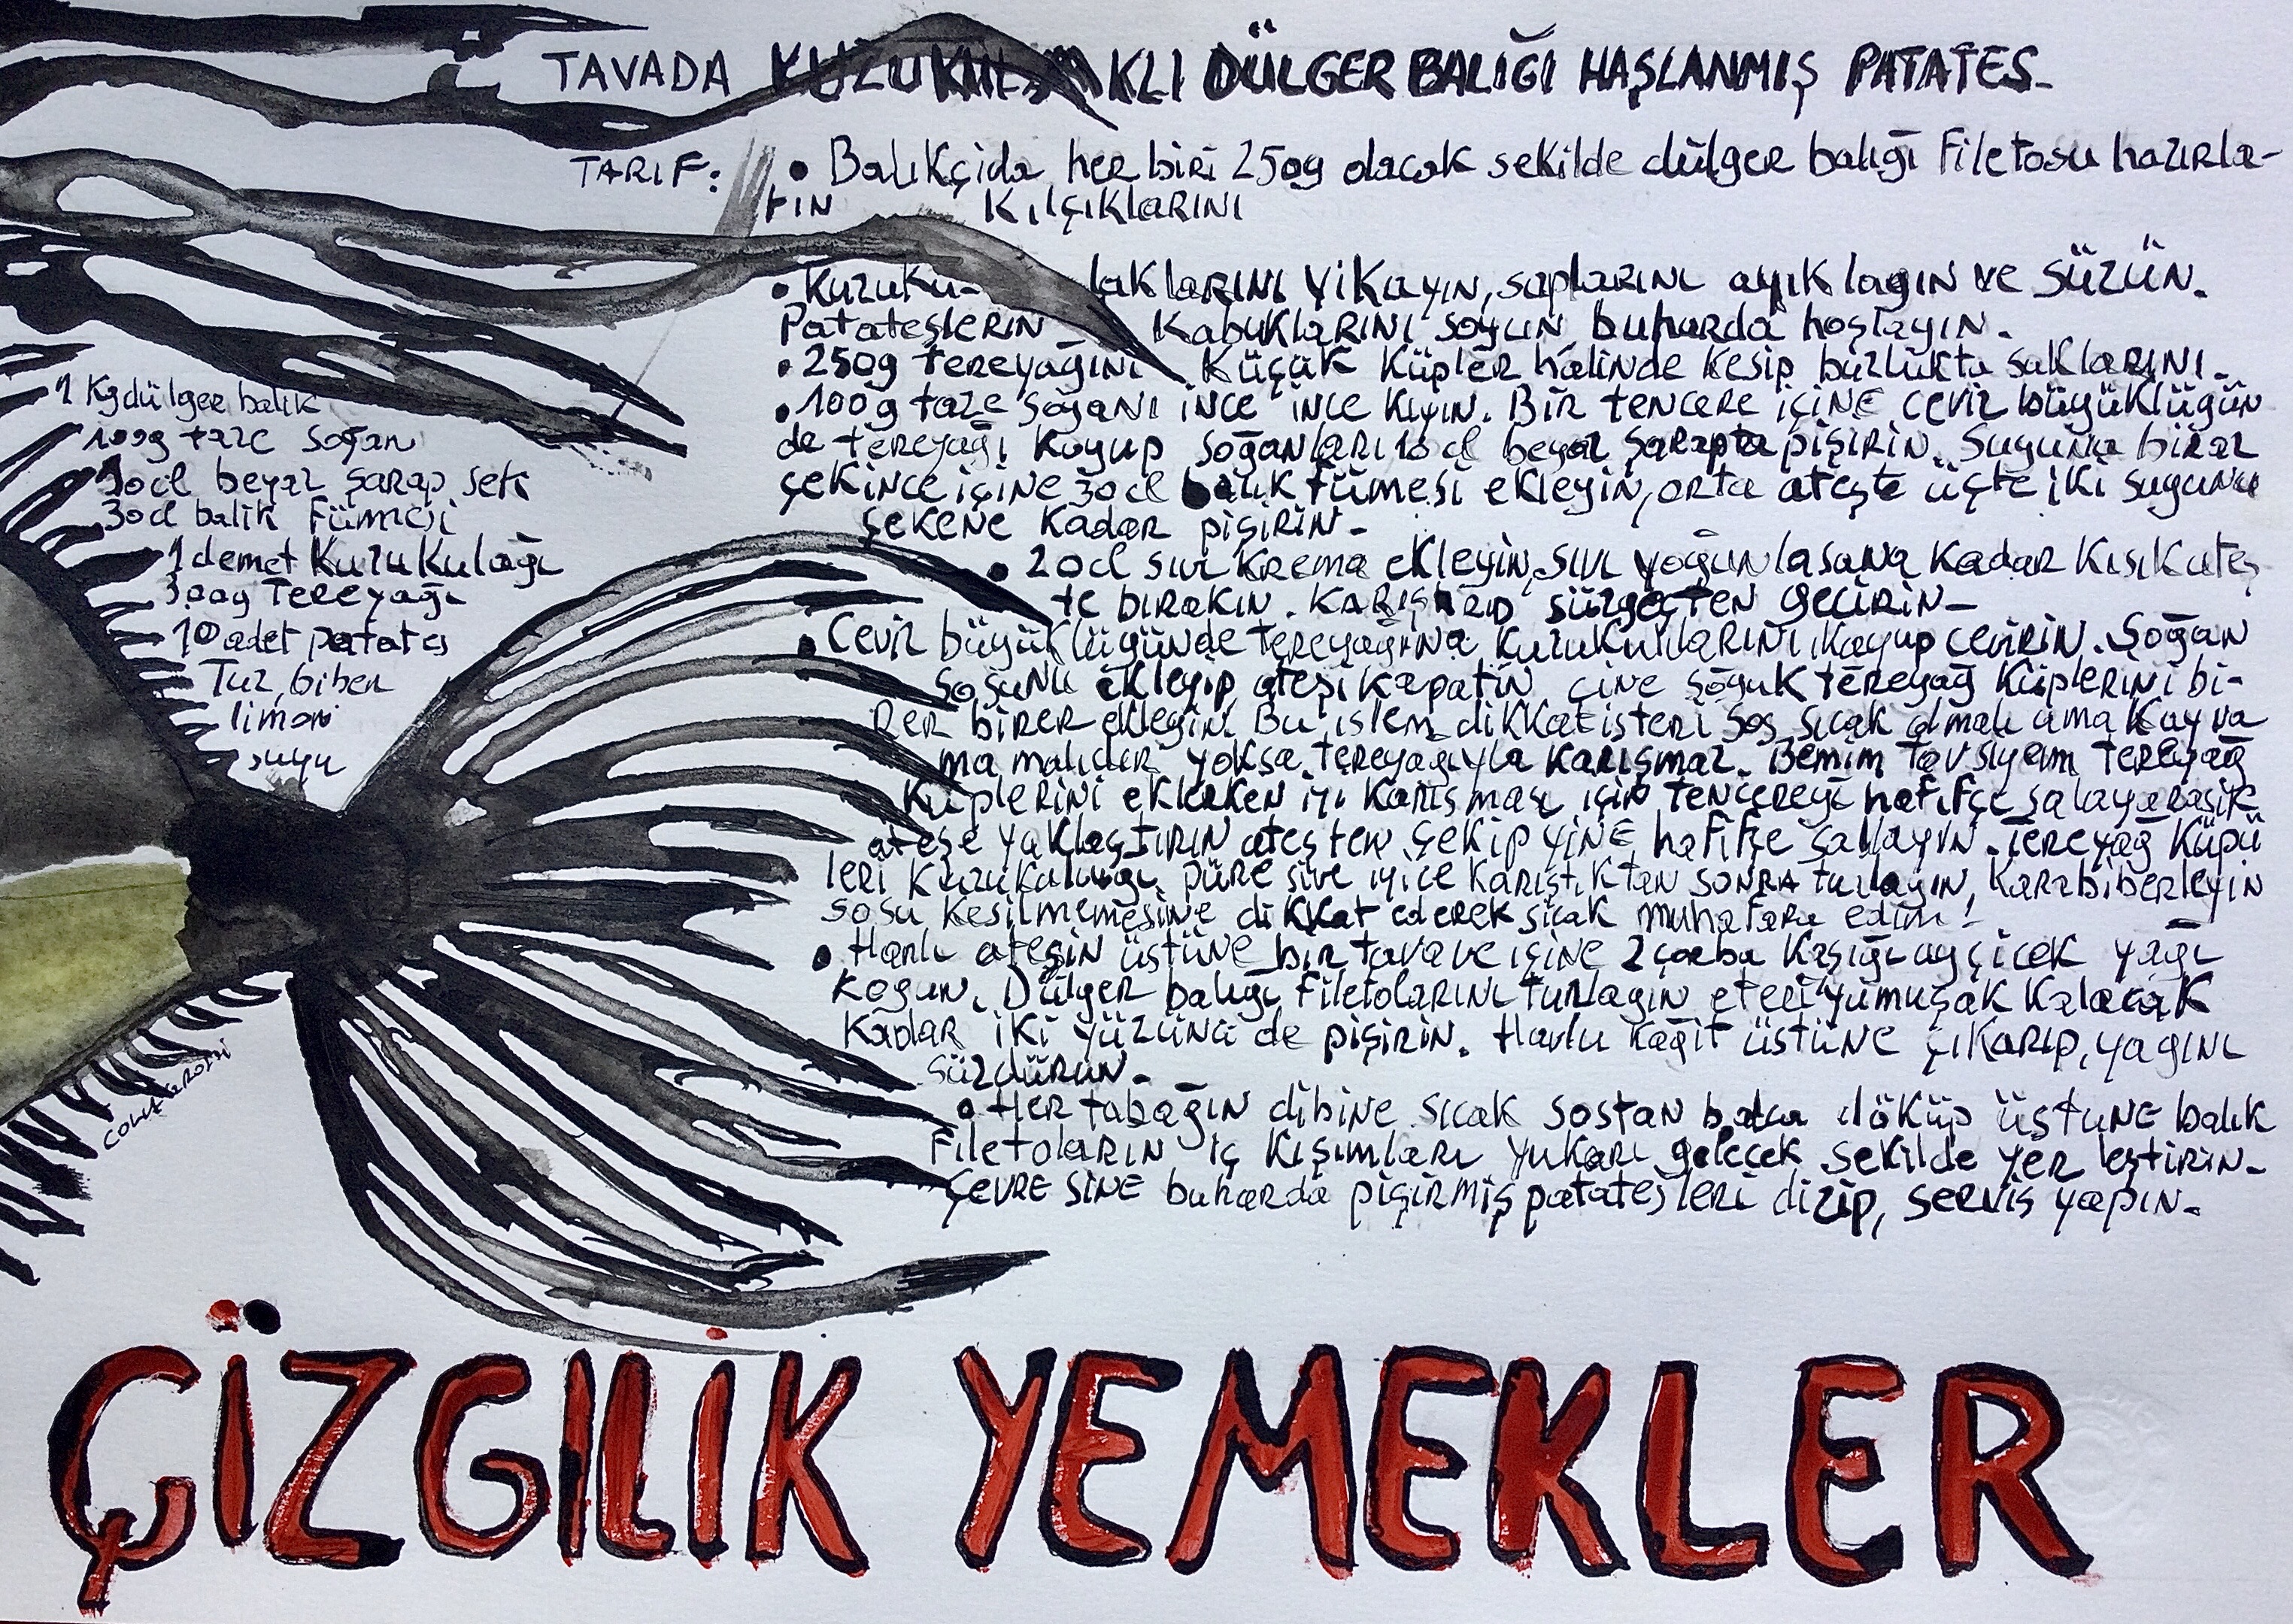 TAVADA KUZUKULAKLI DÜLGER BALIĞI HAŞLANMIŞ PATATES-
TARIF: • Balıkçida her biri 250g olacak sekilde dülger balığı Filetosu hazırla-
tın Kılçıklarını
• Kuzuku- laklarını yikayın, saplarını ayıklagın ve süzün.
Patateşlerin Kabuklarını soyun buharda hoşlayın.
• 250g tereyağını Küçük Küpler halinde Kesip buzlukta saklarını.
• 100g taze soğanı ince ince kıyın. Bir tencere içine ceviz büyüklügün
de tereyağı Koyup soğanları 10 cl beyaz şarapta pişirin. Suyunu biraz
çekince içine 30 cl balık fümesi ekleyin, orta ateşte üçte iki suyunu
şekene kadar pişirin-
• 20cl sıvı Krema ekleyin, sıvı yoğunlasana Kadar Kısık ateş
te bırakın. süzgeçten geçirin-
• Ceviz büyüklügünde tereyağına Kuzukulların koyup cevirin. Soğan
sosunu ekleyip ateşi kapatin, çine soğuk tereyağ Küplerini bi-
rer birer eklegin. Bu islem dikkat isteri Sos sıcak olmalı ama Kayna
ma malıdır yoksa tereyağıyla karışmaz. Bemim tavsiyem tereyağ
Küplerini eklerken iyi karışması için tencereyi hafifçe
ateşe yaklaştırın ateşten çekip yine hafifçe sallayın. Tereyağ Küpü
leri Kuzukulağı püresive iyice Karıştıktan sonra tuzlayın, Karabiberleyin
sosu Kesilmemesine dikkat ederek sıcak muhafaza edin!
• Harlı ateşin üstüne bir tava ve içine 2 çorba Kaşığı ayçicek yağı
Kogun. Dülger balığı Filetolarını tuzlagın eteri yumuşak Kalacak
Kadar iki yüzünü de pişirin. Havlu Kağıt üstüne çıkarıp, yagını
süzdürün-
• Her tabağın dibine sıcak sostan döküp üstune balık
Filetoların iç Kısımları yukarı gelecek sekilde yer leştirin-
Çevre sine buharda pişirmiş patatesleri dizip, servis yapın-
1 Kg dülger balık
100g taze soğan
10 cl beyaz şarap sek
30cl balık Fümesi
1 demet Kuzu Kulağı
300g Tereyağı
10 adet patates
Tuz, biber
limon
suyu
ÇİZGILIK YEMEKLER